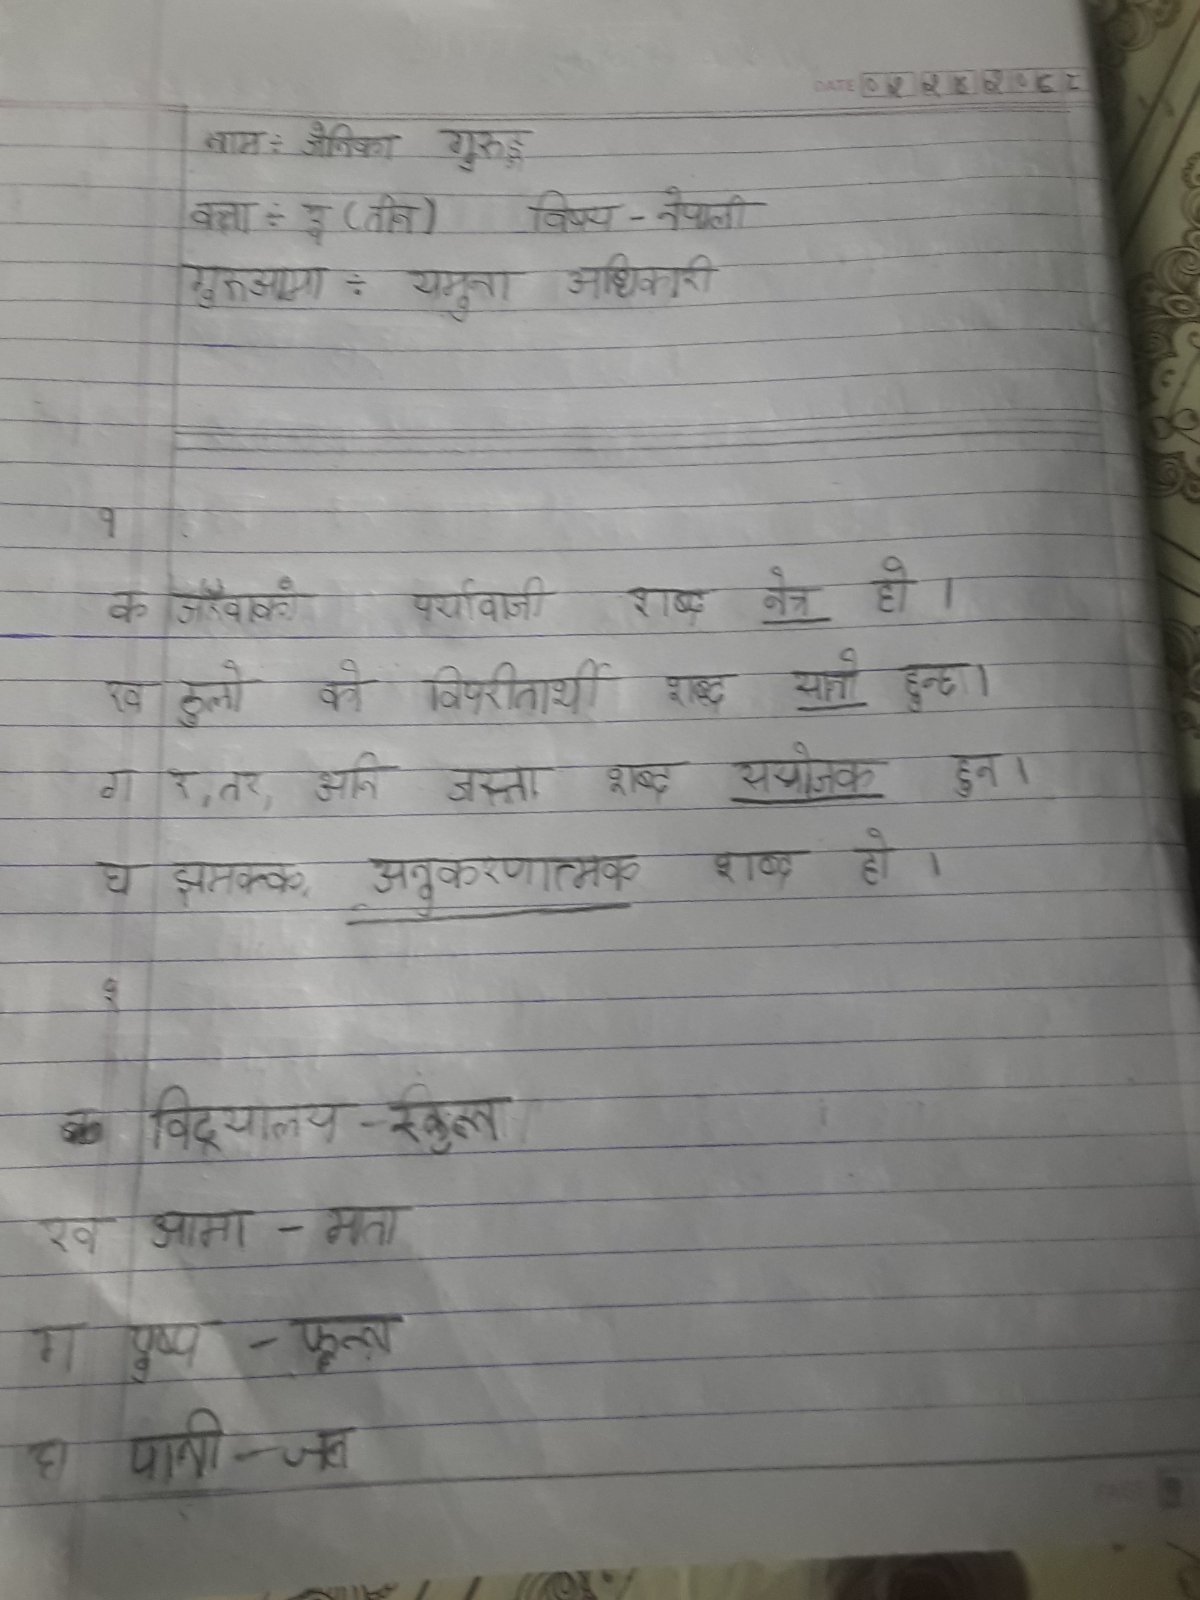 DATE
नाम ÷ जेनिका गुरुङ्ग
कक्षा ÷ ३ (तीन) विषय - नेपाली
गुरुआमा ÷ यमुना अधिकारी
१
क पर्यावाजी शब्द नेत्र हो ।
ख ठुलो को विपरीतार्थी शब्द सानो हुन्छ।
ग र, तर, अनि जस्ता शब्द सयोजक हुन ।
घ झमक्क, अनुकरणात्मक शब्द हो ।
क विद्यालय - स्कुल
ख आमा - मता
ग पुष्प - फूल
घ पानी - जल